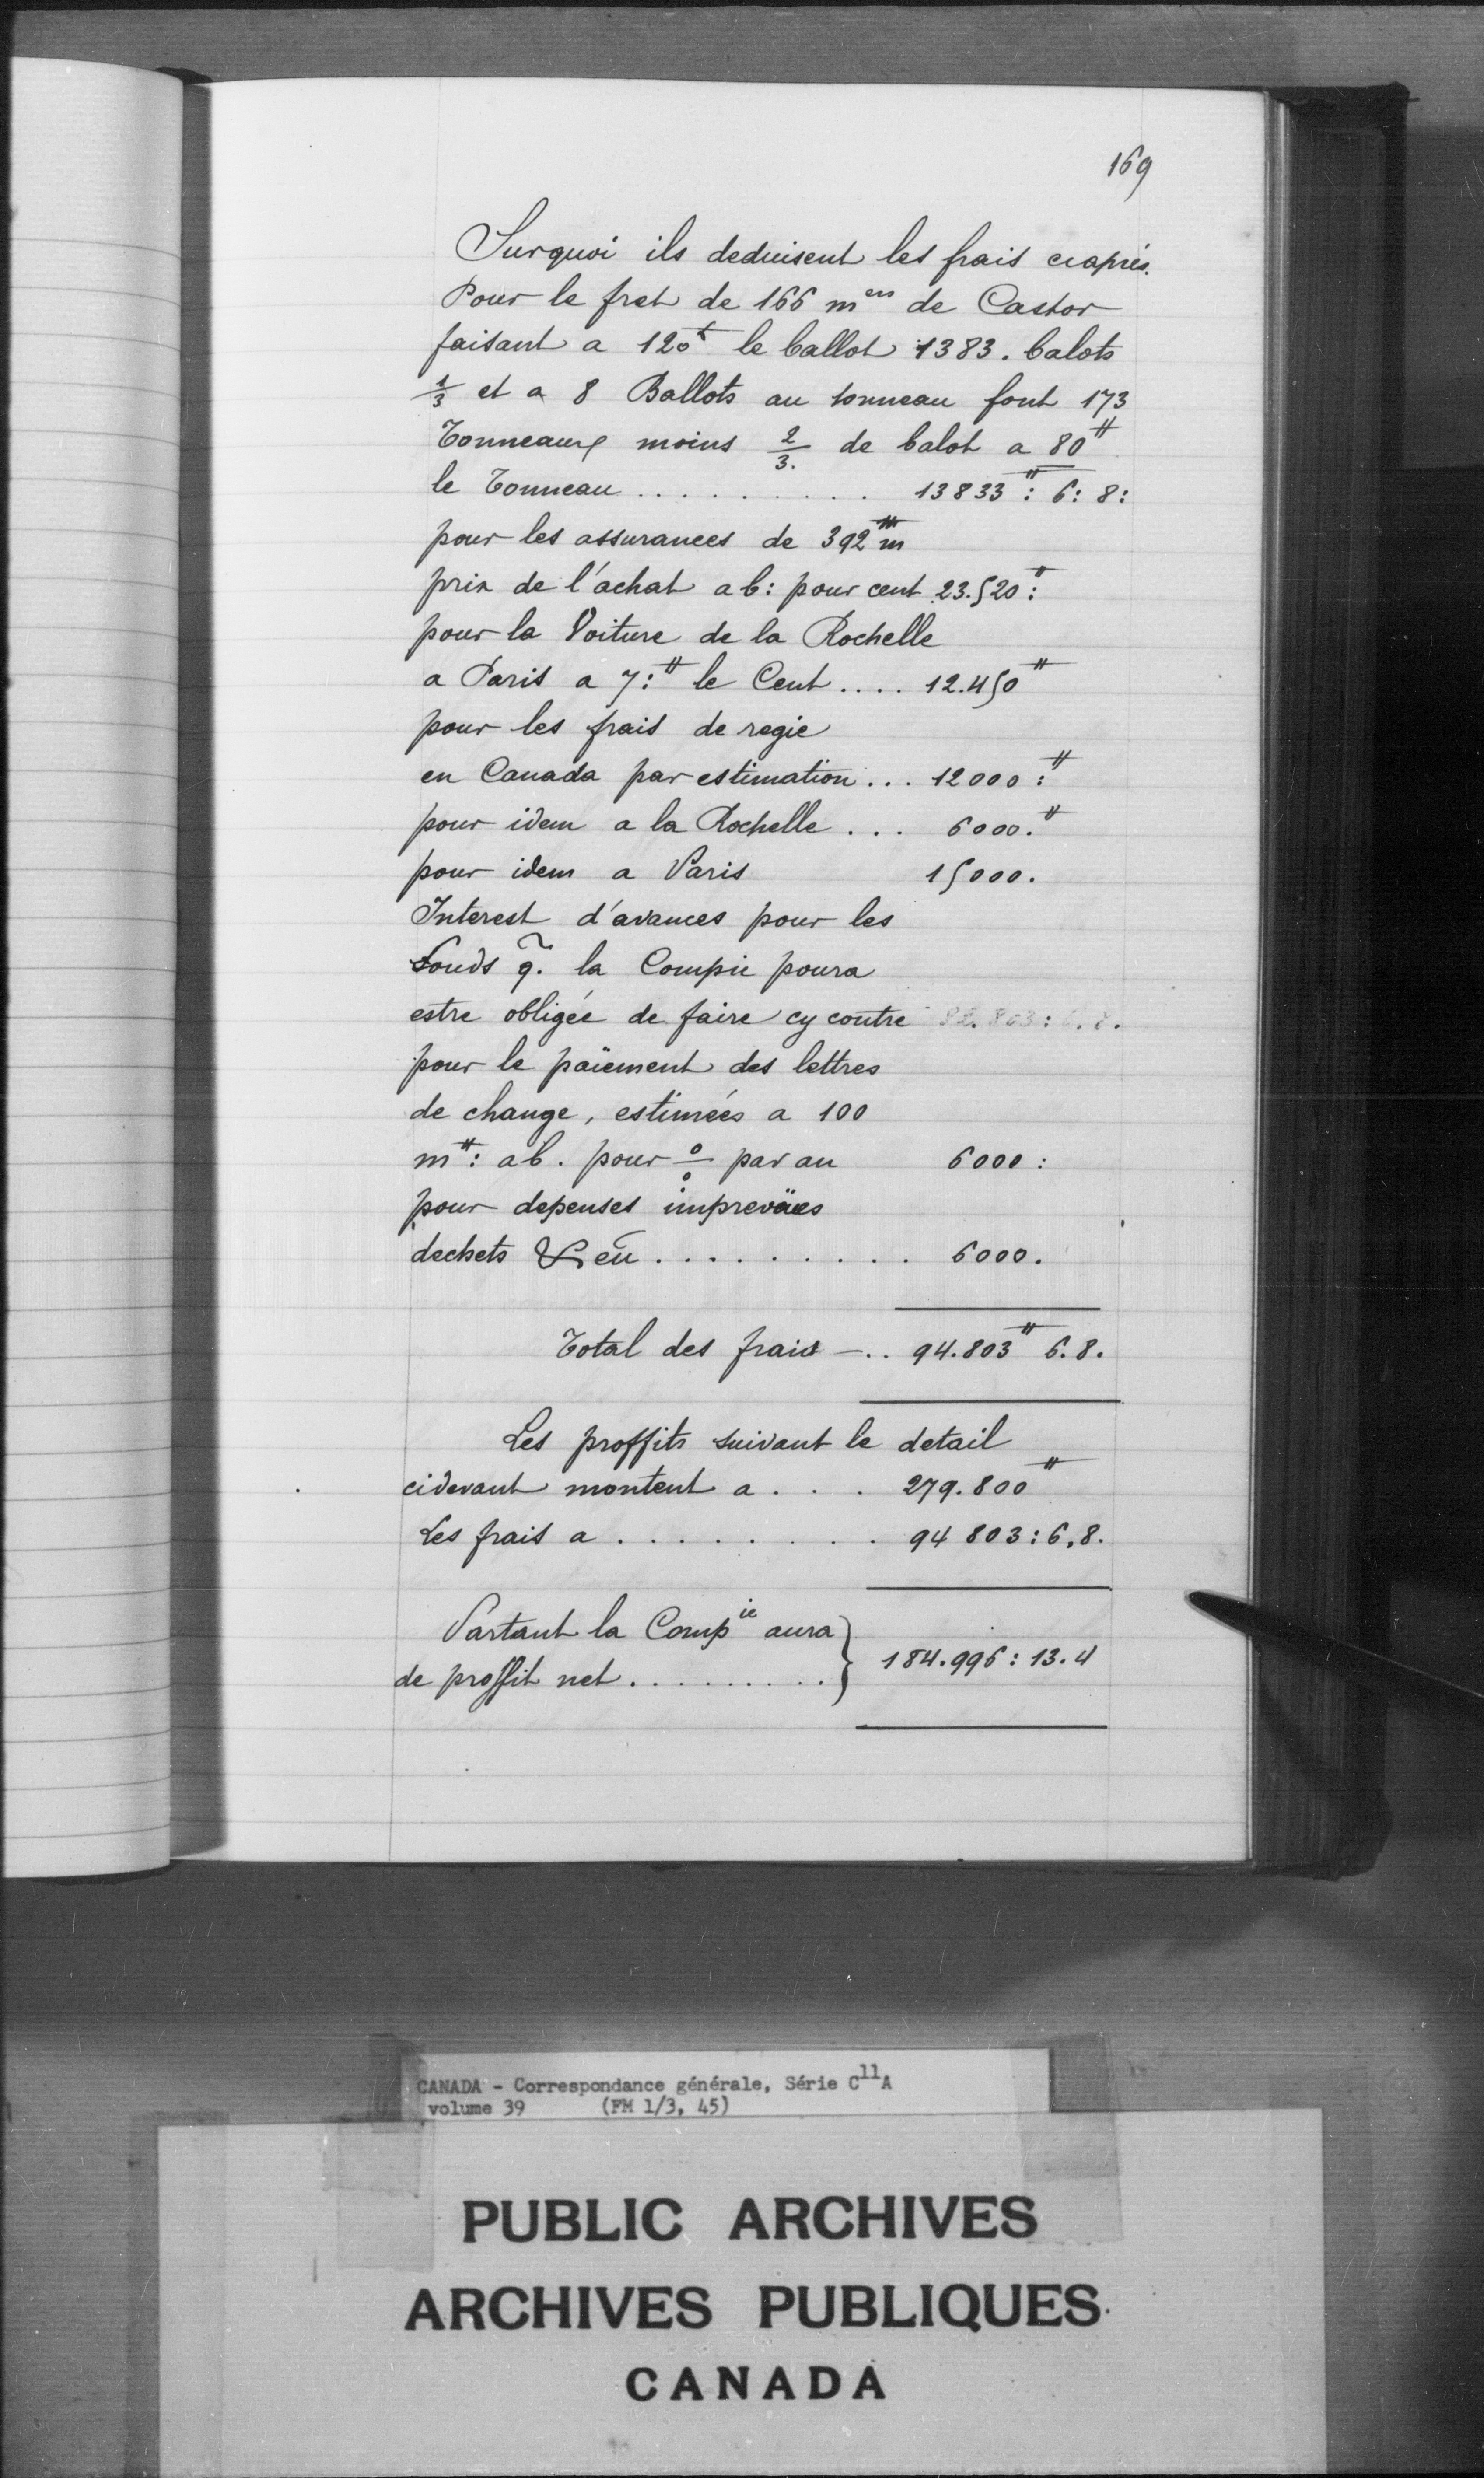 169
Surquoi ils deduisent les frais ciaprés.
Pour le fret de 166 m^ers de Castor
faisant a 120^t le ballot 1383. balots
1/3 et a 8 Ballots au tonneau font 173
Tonneaux moins 2/3. de balot a 80^#
le Tonneau .......... 13833^# : 6: 8:
pour les assurances de 392^# m
prix de l'achat a 6: pour cent 23.520:^#
pour la Voiture de la Rochelle
a Paris a 7:^# le Cent .... 12.450^#
pour les frais de regie
en Canada par estimation ... 12000:^#
pour idem a la Rochelle ... 6000.^#
pour idem a Paris 15000.
Interest d'avances pour les
fonds q̃. la Compie poura
estre obligée de faire cy contre 82.803: 6. 8.
pour le païement des lettres
de change, estimées a 100
m^#: a 6. pour % par an 6000:
pour depenses imprevües
dechets & ......... 6000.
Total des frais - .. 94.803^# 6. 8.
Les proffits suivant le detail
cidevant montent a ... 279.800^#
Les frais a ......... 94 803: 6, 8.
Partant la Comp^ie aura
de proffit net ......... } 184.996: 13. 4
CANADA - Correspondance générale, Série C^11A
volume 39 (FM 1/3, 45)
PUBLIC ARCHIVES
ARCHIVES PUBLIQUES
CANADA